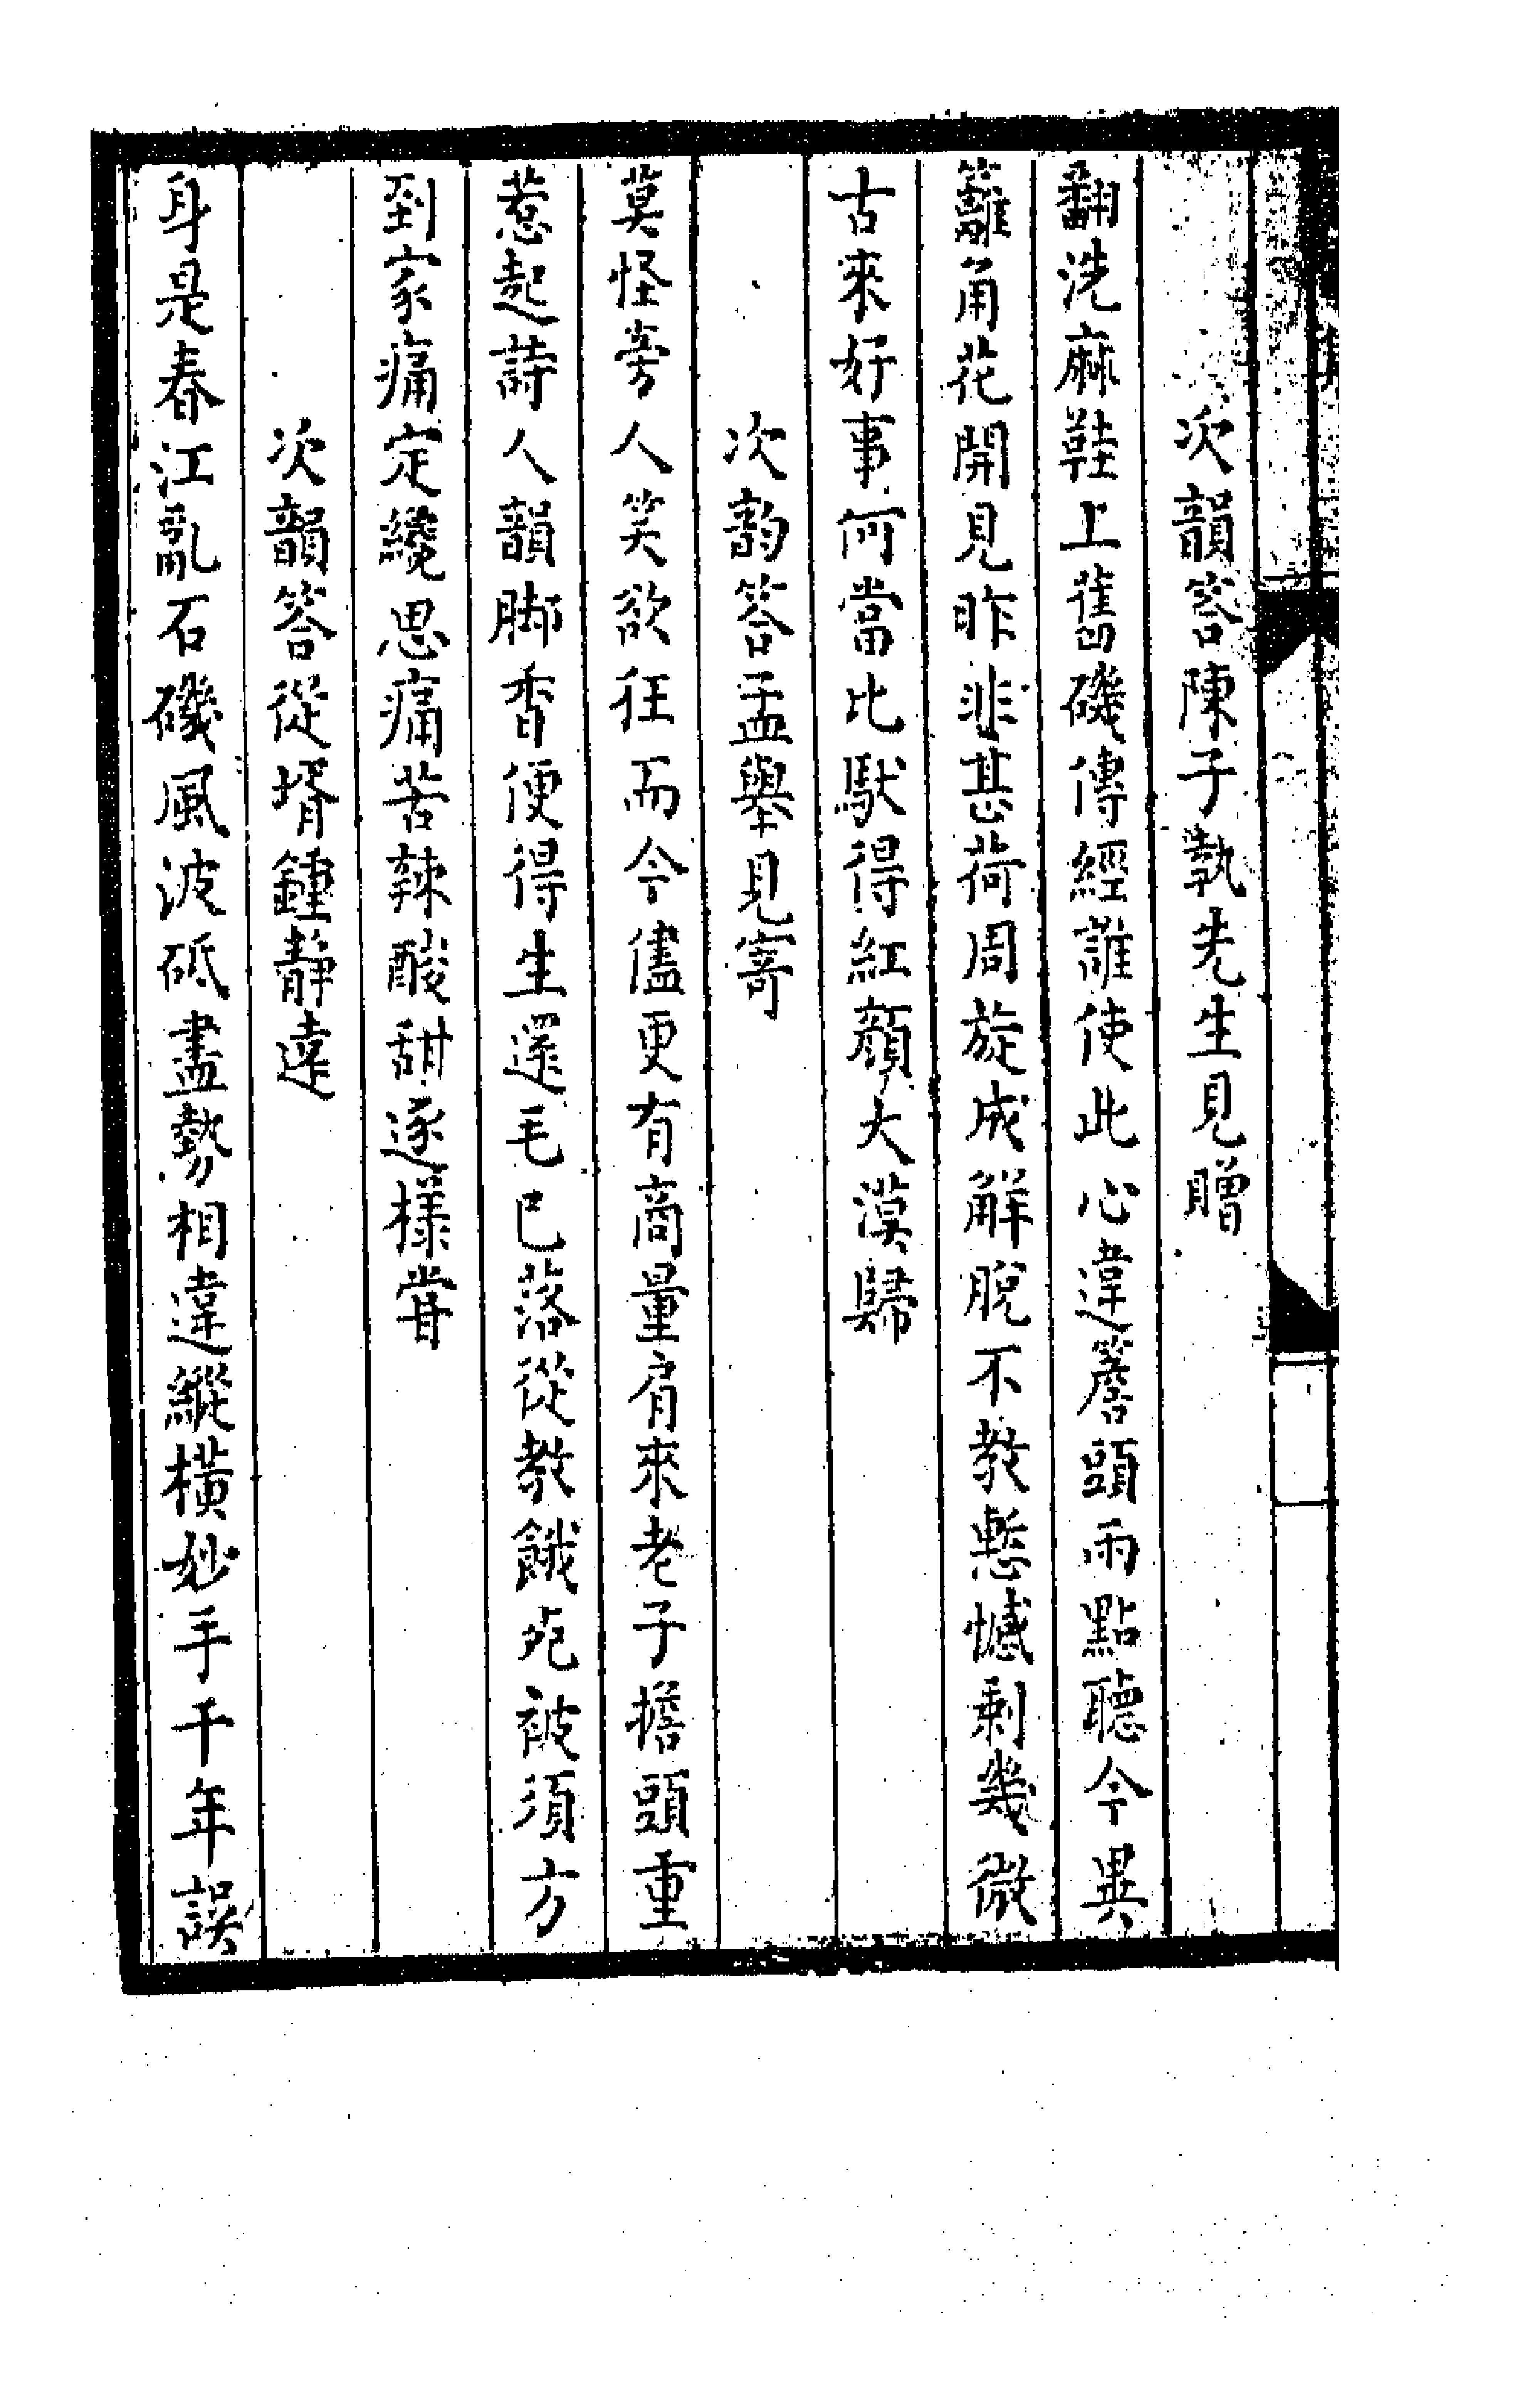 次韻答陳子執先生見贈
翻洗麻鞋上舊磯傳經誰使此心違簷頭雨點聽今異
籬角花開見昨非甚荷周旋成解脫不教慙憾剩幾微
古來好事何當比馱得紅顏大漠歸
次韵答孟舉見寄
莫怪旁人笑欲狂而今儘更有商量肩來老子擔頭重
惹起詩人韻脚香便得生還毛已落從教餓死被須方
到家痛定纔思痛苦辣酸甜逐樣甞
次韻答從壻鍾靜遠
身是春江亂石磯風波砥盡勢相違縱橫妙手千年誤